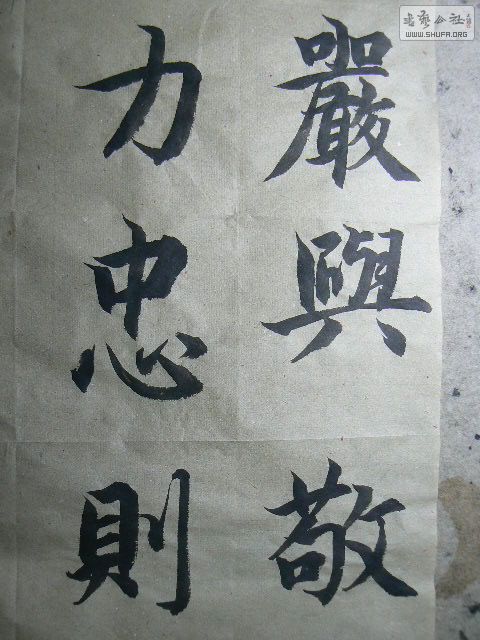 嚴與敬
力忠則
书艺公社
WWW.SHUFA.ORG